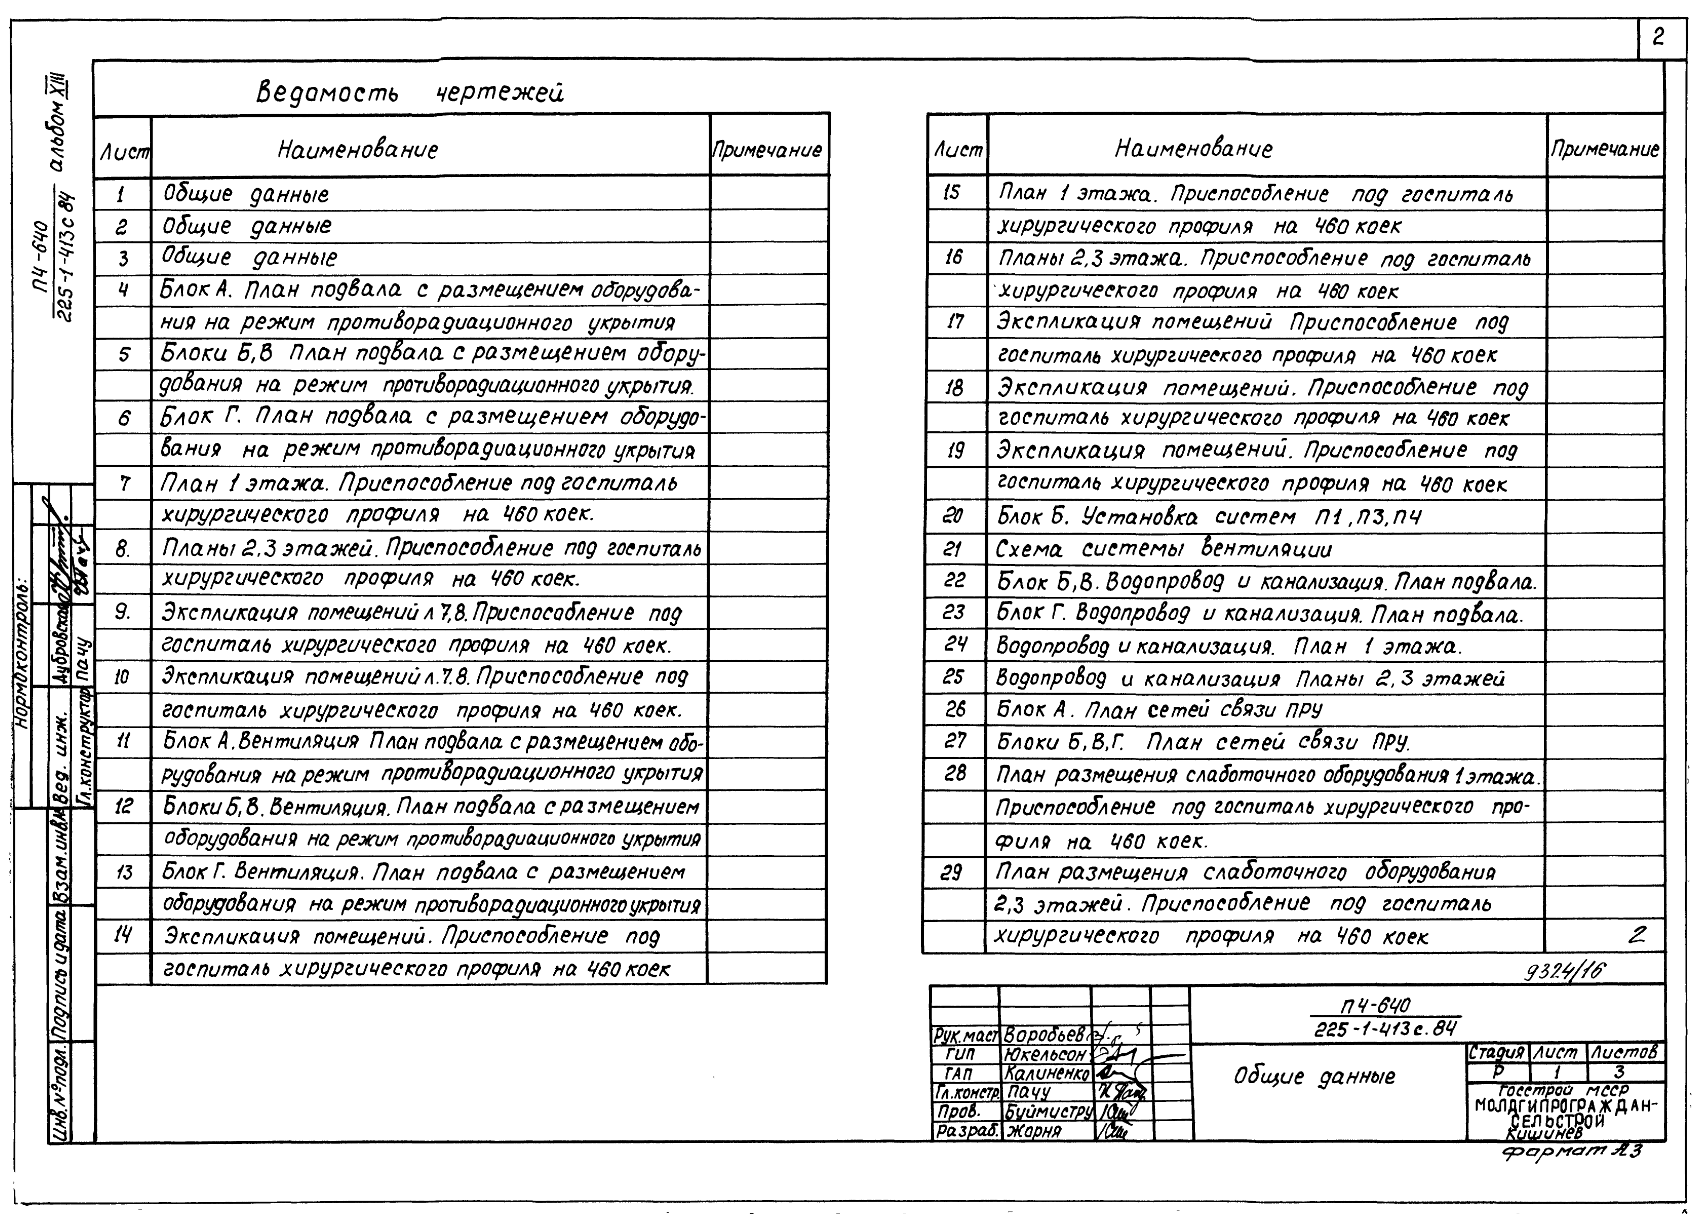 2
Ведомость чертежей
Лист Наименование Примечание
1 Общие данные
2 Общие данные
3 Общие данные
4 Блок А. План подвала с размещением оборудова-
ния на режим противорадиационного укрытия
5 Блоки Б,В План подвала с размещением обору-
дования на режим противорадиационного укрытия.
6 Блок Г. План подвала с размещением оборудо-
вания на режим противорадиационного укрытия
7 План 1 этажа. Приспособление под госпиталь
хирургического профиля на 460 коек.
8. Планы 2,3 этажей. Приспособление под госпиталь
хирургического профиля на 460 коек.
9. Экспликация помещений л 7,8. Приспособление под
госпиталь хирургического профиля на 460 коек.
10 Экспликация помещений л.7.8. Приспособление под
госпиталь хирургического профиля на 460 коек.
11 Блок А. Вентиляция План подвала с размещением обо-
рудования на режим противорадиационного укрытия
12 Блоки Б,В. Вентиляция. План подвала с размещением
оборудования на режим противорадиационного укрытия
13 Блок Г. Вентиляция. План подвала с размещением
оборудования на режим противорадиационного укрытия
14 Экспликация помещений. Приспособление под
госпиталь хирургического профиля на 460 коек
Лист Наименование Примечание
15 План 1 этажа. Приспособление под госпиталь
хирургического профиля на 460 коек
16 Планы 2,3 этажа. Приспособление под госпиталь
хирургического профиля на 460 коек
17 Экспликация помещений Приспособление под
госпиталь хирургического профиля на 460 коек
18 Экспликация помещений. Приспособление под
госпиталь хирургического профиля на 460 коек
19 Экспликация помещений. Приспособление под
госпиталь хирургического профиля на 460 коек
20 Блок Б. Установка систем П1, П3, П4
21 Схема системы вентиляции
22 Блок Б,В. Водопровод и канализация. План подвала.
23 Блок Г. Водопровод и канализация. План подвала.
24 Водопровод и канализация. План 1 этажа.
25 Водопровод и канализация Планы 2,3 этажей
26 Блок А. План сетей связи ПРУ
27 Блоки Б,В,Г. План сетей связи ПРУ.
28 План размещения слаботочного оборудования 1 этажа.
Приспособление под госпиталь хирургического про-
филя на 460 коек.
29 План размещения слаботочного оборудования
2,3 этажей. Приспособление под госпиталь
хирургического профиля на 460 коек 2
9324/16
П4-640
225-1-413с.84
Рук.маст Воробьев
ГИП Юкельсон
ГАП Калиненко
Гл.констр. Пачу
Пров. Буймистру
Разраб. Жорня
Общие данные
Стадия Лист Листов
Р 1 3
Госстрой МССР
МОЛДГИПРОГРАЖДАН-
СЕЛЬСТРОЙ
Кишинев
Формат А3
П4-640
225-1-413с84
альбом XIII
Нормоконтроль:
Вед. инж. Дубровская
Гл.конструктор Пачу
Взам.инв.№
Подпись и дата
Инв.№ подл.